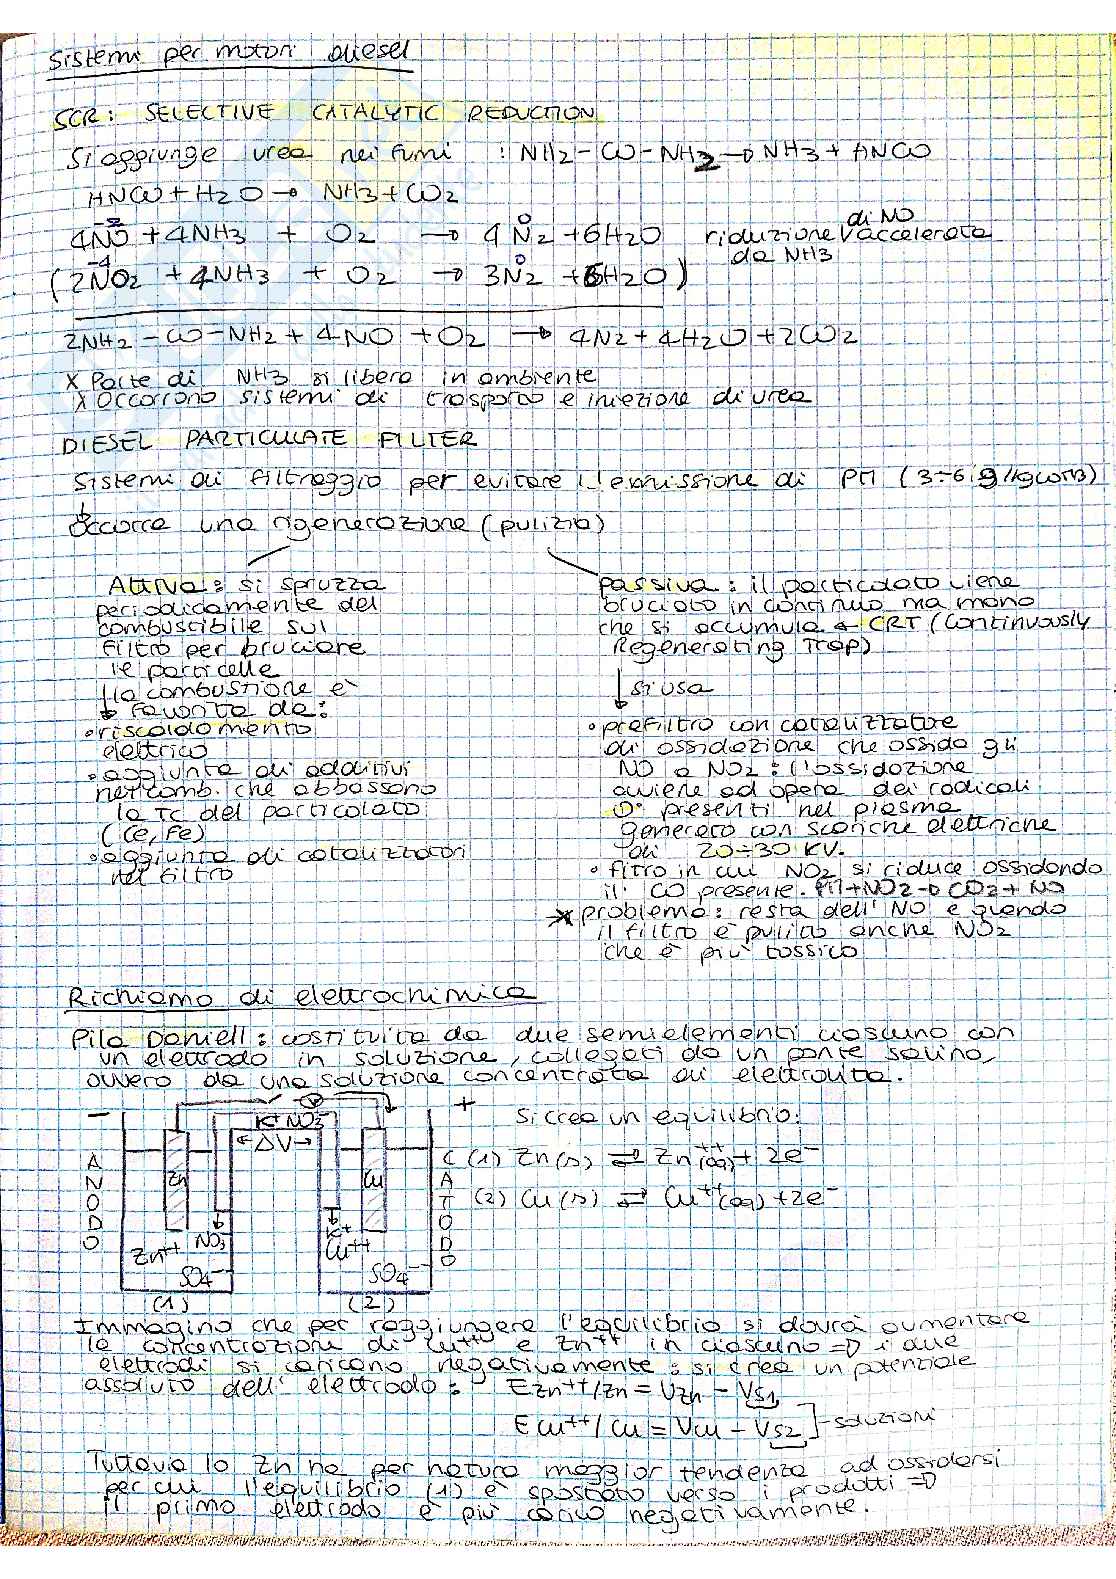 Sistemi per motori diesel
SCR: SELECTIVE CATALYTIC REDUCTION
Si aggiunge urea nei fumi : NH2-CO-NH2 → NH3 + HNCO
HNCO + H2O → NH3 + CO2
4NO + 4NH3 + O2 → 4N2 + 6H2O riduzione di NO accelerata
da NH3
(2NO2 + 4NH3 + O2 → 3N2 + 6H2O)
2NH2-CO-NH2 + 4NO + O2 → 4N2 + 4H2O + 2CO2
X Parte di NH3 si libera in ambiente
X Occorrono sistemi di trasporto e iniezione di urea
DIESEL PARTICULATE FILTER
Sistemi di filtraggio per evitare l'emissione di PM (3÷6 g/kgcomb)
Occorre una rigenerazione (pulizia)
Attiva: si spruzza
periodicamente del
combustibile sul
filtro per bruciare
le particelle
la combustione è
↓ favorita da:
• riscaldamento
elettrico
• aggiunta di additivi
nel comb. che abbassano
la Tc del particolato
(Ce, Fe)
• aggiunta di catalizzatori
nel filtro
passiva: il particolato viene
bruciato in continuo ma mano
che si accumula ← CRT (Continuously
Regenerating Trap)
↓ si usa
• prefiltro con catalizzatore
di ossidazione che ossida gli
NO a NO2: l'ossidazione
avviene ad opera dei radicali
O• presenti nel plasma
generato con scariche elettriche
di 20÷30 KV.
• fitro in cui NO2 si riduce ossidando
il CO presente. PM+NO2→CO2+NO
X problema: resta dell'NO e quando
il filtro è pulito anche NO2
che è più tossico
Richiamo di elettrochimica
Pila Daniell: costituita da due semielementi ciascuno con
un elettrodo in soluzione, collegati da un ponte salino,
ovvero da una soluzione concentrata di elettrolita.
- +
K+ NO3-
← ΔV →
ANODO
Zn
Cu
CATODO
NO3-
K+
Zn++
Cu++
SO4--
SO4--
(1)
(2)
Si crea un equilibrio:
(1) Zn(s) ⇌ Zn++(aq) + 2e-
(2) Cu(s) ⇌ Cu++(aq) + 2e-
Immagino che per raggiungere l'equilibrio si dovrà aumentare
la concentrazione di Cu++ e Zn++ in ciascuno => i due
elettrodi si caricano negativamente: si crea un potenziale
assoluto dell'elettrodo: EZn++/Zn = VZn - VS1
ECu++/Cu = VCu - VS2 ]-soluzioni
Tuttavia lo Zn ha per natura maggior tendenza ad ossidarsi
per cui l'equilibrio (1) è spostato verso i prodotti =>
il primo elettrodo è più carico negativamente.